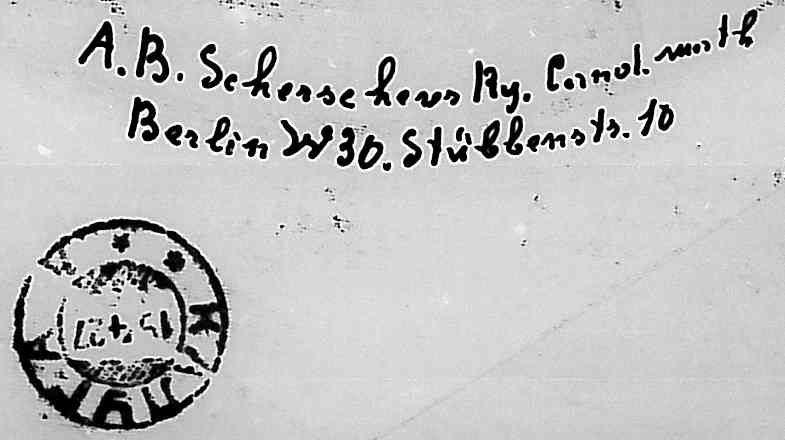 A.B. Scherschewsky. Cand. math
Berlin W 30. Stübbenstr. 10